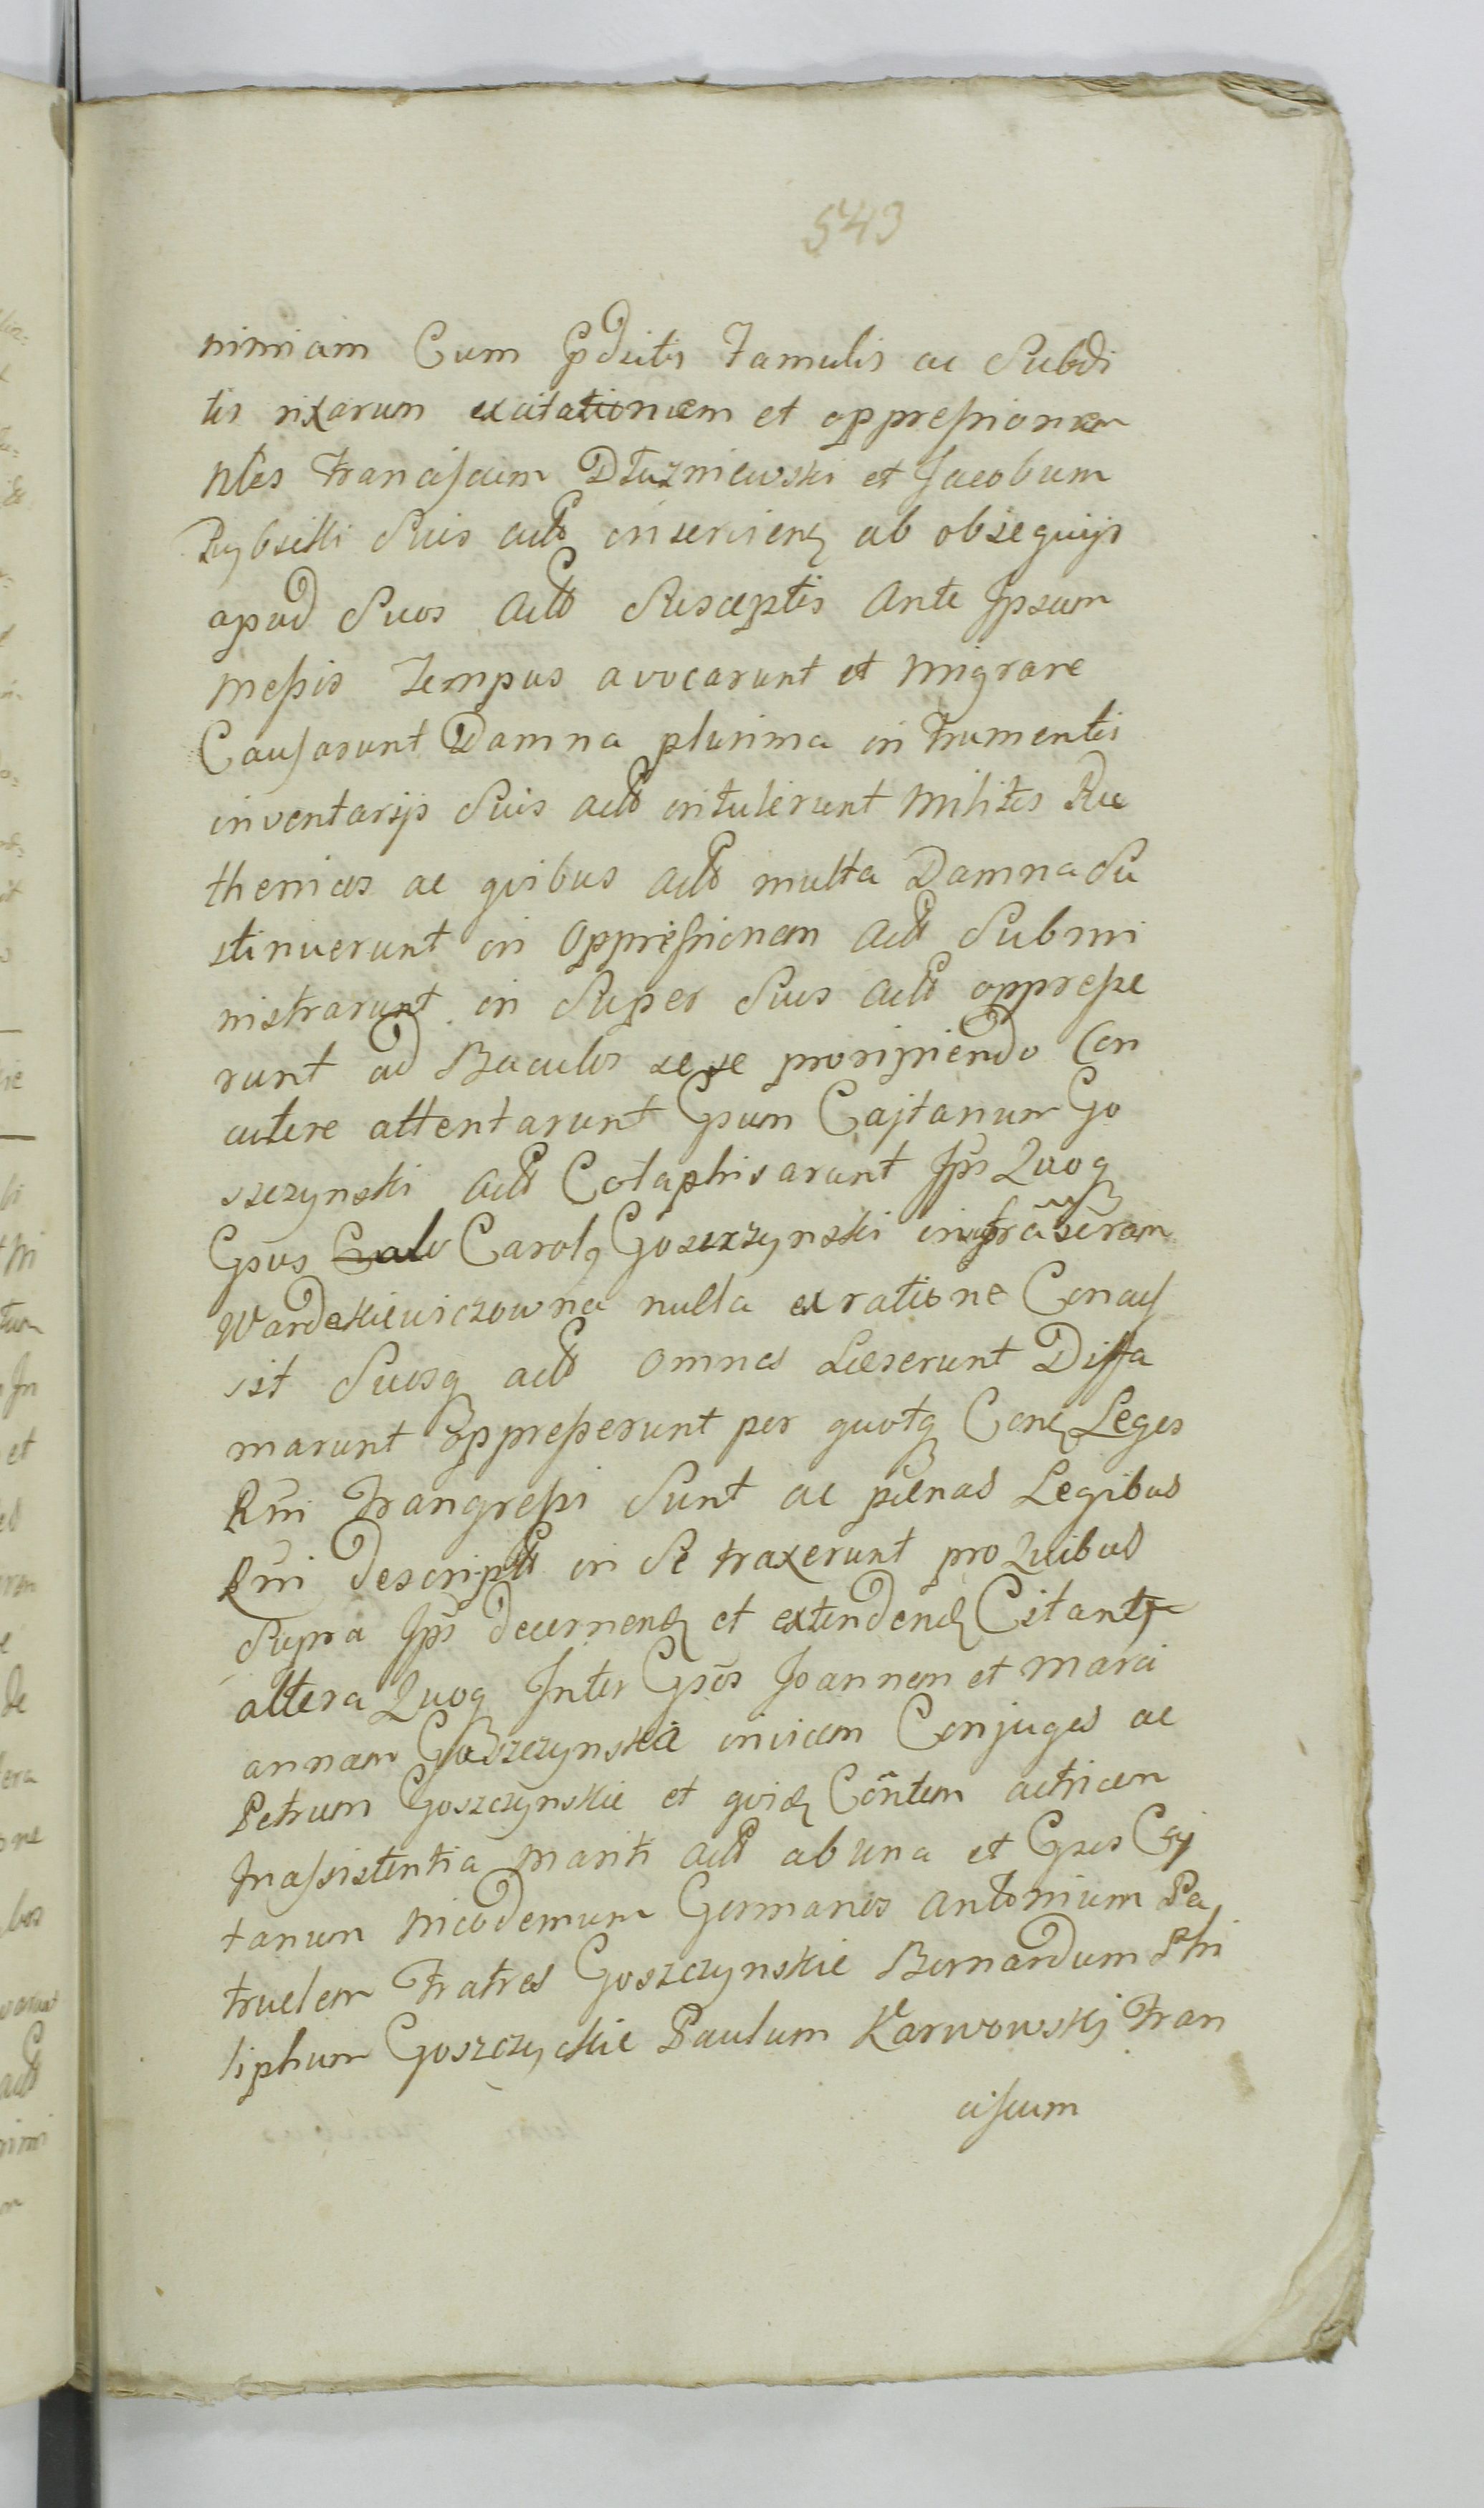 543
nimiam Cum Pdictis Famulis ac Subdi
tis rixarum excitationem et oppressionem
Nbles Franciscum Dłuzniewski et Jacobum
Rybicki Suis actb inservien ab obsequijs
apud Suos Actb Susceptis Ante Ipsum
Messis Tempus avocarunt et Migrare
Causarunt Damna plurima in Frumentis
inventarijs Suis actb intulerunt Milites Ru
thenicos ac quibus actb multa Damna Su
stinuerunt in Oppressionem Actb Submi
nistrarunt in Super Suis Actb oppresse
runt ad Baculos sese proripiendo Con
cutere attentarunt Gsum Cajtanum Go
szczynski Actb Colaphisarunt Ips Quoq
Gsus Carolq Goszczynski
Wardeskiewiczowna nulla ex ratione Concus
sit Suosq actb omnes Læserunt Diffa
marunt Oppresserunt per quotq Leges
Rni Trangressi Sunt ac pænas Legibus
Rni descriptb in Se traxerunt pro Quibus
Supra Ips decernend et extendend Citantr
altera Quoq Inter Gsos Joannem et Mari
annam Goszczynskie invicem Conjuges ac
Petrum Goszczynskie et quid Contem actricem
In assistentia Mariti actb ab una et Gsos Caj
tanum Nicodemum Germanos Antonium Pa
truelem Fratres Goszczynskie Bernardum Phi
liphum Goszczyckie Paulum Karwowskj Fran
ciscum